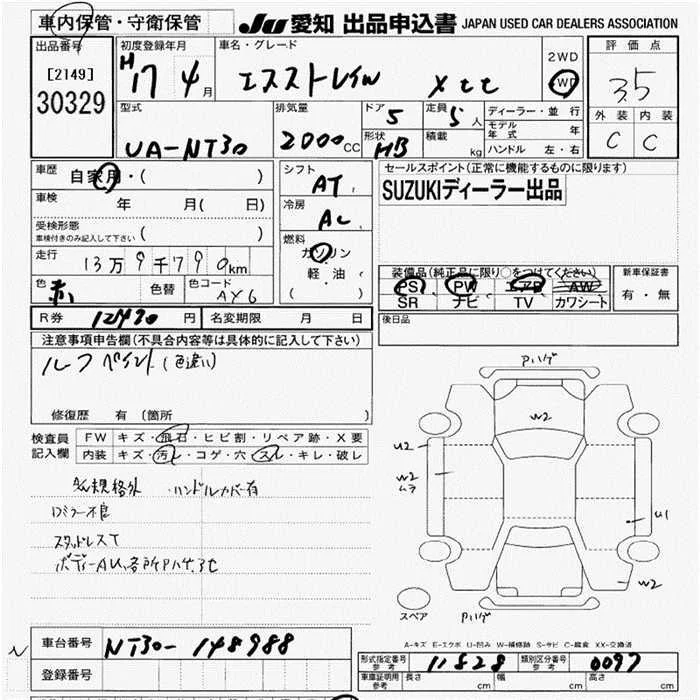 車内保管・守衛保管
JU 愛知 出品申込書 JAPAN USED CAR DEALERS ASSOCIATION
出品番号 初度登録年月 車名・グレード 2WD 4WD 評価点
[2149]
30329
H17 4月 エクストレイル Xtt 3.5
型式 排気量 ドア 5 定員 5人 ディーラー・並行 外装 内装
モデル年式 年
UA-NT30 2000cc 形状 HB 積載 kg ハンドル 左・右 C C
車歴 自家用・( ) シフト AT セールスポイント(正常に機能するものに限ります)
SUZUKIディーラー出品
車検 年 月( 日) 冷房 AC
受検形態
車検付きのみ記入して下さい ( ) 燃料 ガソリン
軽・油
( )
走行 13万9千790km
装備品(純正品に限り○をつけてください) 新車保証書
PS PW エアB AW 有・無
SR ナビ TV カワシート
色 赤 色替 色コード AX6
R券 12430円 名変期限 月 日 後日品
注意事項申告欄(不具合内容等は具体的に記入して下さい)
ルーフペイント(色違い)
修復歴 有 〔箇所 〕
検査員記入欄 FW キズ・飛石・ヒビ割・リペア跡・X要
内装 キズ・汚レ・コゲ・穴・スレ・キレ・破レ
規格外 ハンドルカバー有
ミラー不良
スタッドレスT
ボディーAU、各所Pハゲ、
Pハゲ
W2
U2
W2
ムラ
U1
W2
スペア
Pハゲ
A-キズ E-エクボ U-凹み W-補修跡 S-サビ C-腐食 XX-交換済
車台番号 NT30-148988
登録番号
型式指定番号 参考 11828 類別区分番号 参考 0097
車庫証明用 参考 長さ cm 幅 cm 高さ cm